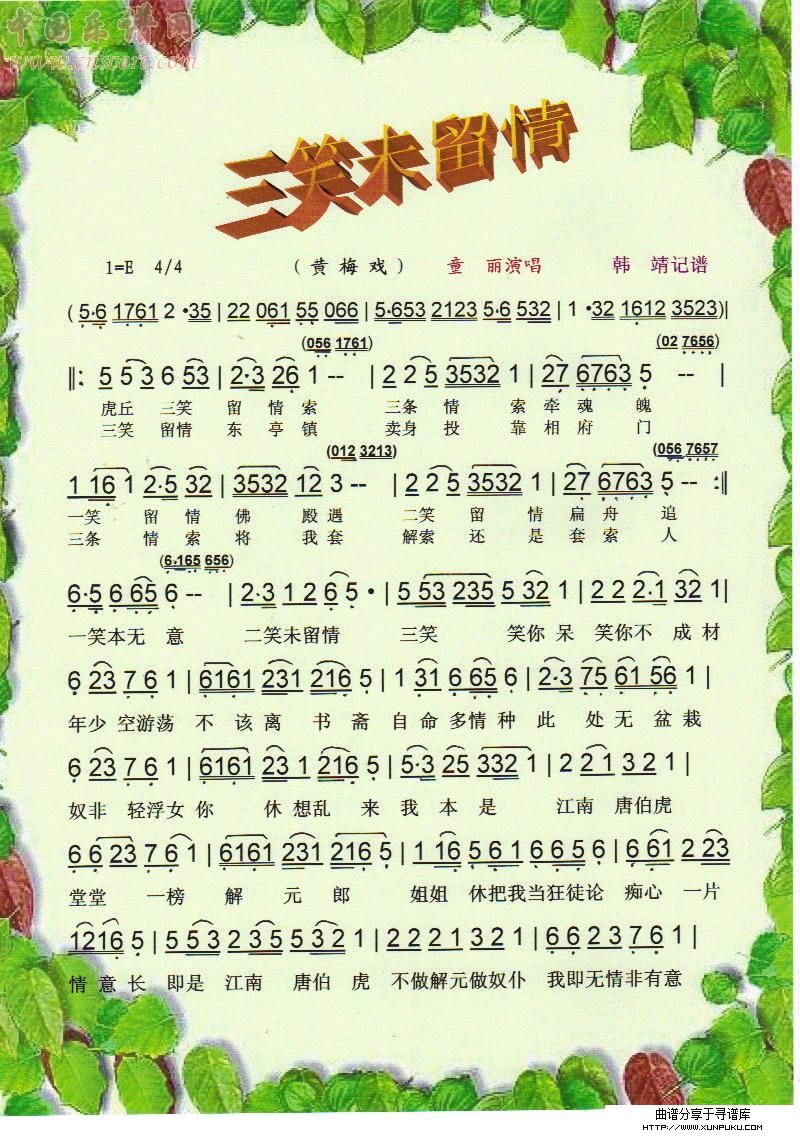 中国乐谱网
www.cnscore.com
三笑未留情
1=E 4/4 （黄梅戏） 童 丽演唱 韩 靖记谱
(5·6 1761 2 ·35 | 22 061 55 066 | 5·653 2123 5·6 532 | 1 ·32 1612 3523)|
(056 1761) (02 7656)
‖: 5 5 3 6 53 | 2·3 26 1 -- | 2 2 5 3532 1 | 27 6763 5 -- |
虎丘 三笑 留 情 索 三条 情 索 牵 魂 魄
三笑 留情 东 亭 镇 卖身 投 靠 相 府 门
(012 3213) (056 7657
1 16 1 2·5 32 | 3532 12 3 -- | 2 2 5 3532 1 | 27 6763 5 -- :‖
一笑 留 情 佛 殿 遇 二笑 留 情 扁 舟 追
三条 情 索 将 我 套 解索 还 是 套 索 人
(6·165 656)
6·5 6 65 6 -- | 2·3 1 2 6 5 · | 5 53 235 5 32 1 | 2 2 2·1 32 1 |
一笑本无 意 二笑未留情 三笑 笑你 呆 笑你不 成 材
6 23 7 6 1 | 6161 231 216 5 | 1 31 6 65 6 | 2·3 75 61 56 1 |
年少 空游荡 不 该 离 书 斋 自 命 多 情 种 此 处 无 盆 栽
6 23 7 6 1 | 6161 23 1 216 5 | 5·3 25 332 1 | 2 2 1 3 2 |
奴非 轻浮女 你 休 想乱 来 我 本 是 江南 唐伯虎
6 6 23 7 6 1 | 6161 231 216 5 | 1 16 5 6 1 6 6 5 6 | 6 61 2 23
堂堂 一榜 解 元 郎 姐姐 休把我当狂徒论 痴心 一片
1216 5 | 5 5 3 2 3 5 5 3 2 1 | 2 2 2 1 3 2 1 | 6 6 2 3 7 6 1 |
情 意 长 即是 江南 唐伯 虎 不做解元做奴仆 我即无情非有意
曲谱分享于寻谱库
HTTP://WWW.XUNPUKU.COM